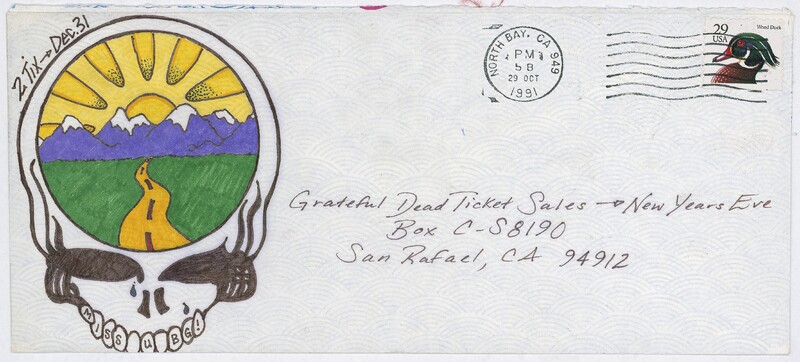 2 Tix → Dec. 31
NORTH BAY, CA 949
PM
5B
29 OCT
1991
29
USA
Wood Duck
Grateful Dead Ticket Sales → New Years Eve
Box C-S8190
San Rafael, CA 94912
MISS U BG!